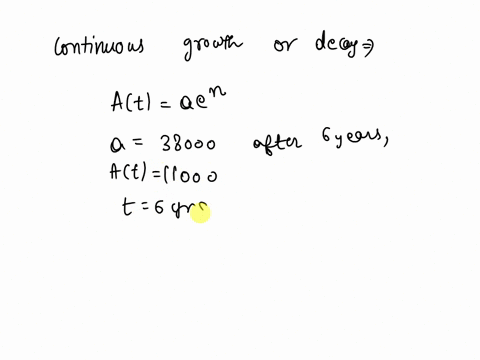 continuous growth or decay ⇒
A(t) = ae^rt
a = 38000 after 6 years,
A(t) = 11000
t = 6 yrs